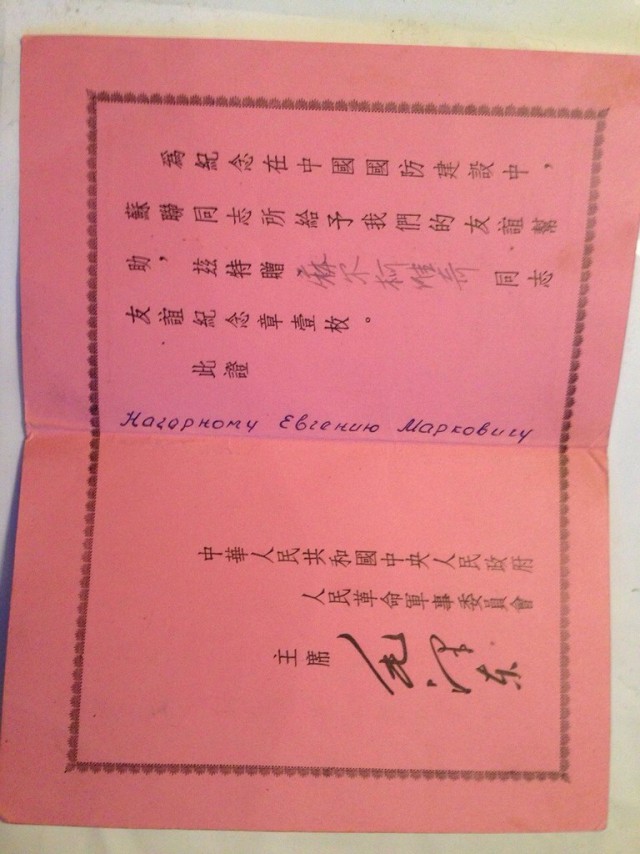 為紀念在中國國防建設中，
蘇聯同志所給予我們的友誼幫
助，茲特贈麻尔柯維奇同志
友誼紀念章壹枚。
此證
Нагорному Евгению Марковичу
中華人民共和國中央人民政府
人民革命軍事委員會
主席 毛泽东